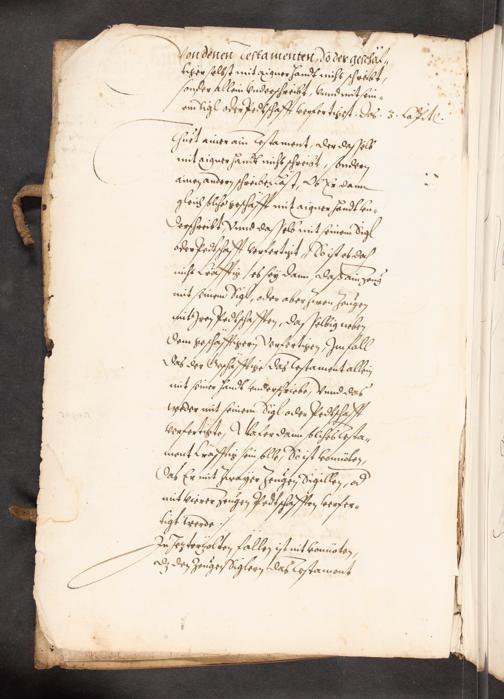 Von denen Testamenten, So der geschäf-
tiger selbst mit aigner handt nicht schreibt,
sonder allein Underschreibt, unnd mit sei-
nem Sigl oder Pedtschafft verfertiget. Das 3. Cap:
Thuet ainer ain Testament, der das selb
mit aigner handt nicht schreibt, sondern
ainen andern schreiben last, Ob Er dann
gleich solches geschäfft mit aigner handt un-
derschreibt Unnd dasselb mit seinem Sigl
oder Pedtschafft verfertigt, So ist es doch
nicht Cräfftig, es sey dann, das ain zeug
mit seinem Sigl, oder aber zwen Zeugen
mit Iren Pedtschafften, das selbig neben
dem geschäfftigern verfertigen. Im fall
das der Geschäfftiger das Testament allein
mit seiner handt underschriebe, Unnd das
weder mit seinem Sigl oder Pedtschafft
verfertigte, Wa er dann solches Testa-
ment Cräfftig sein solle, So ist vonnöten,
das Er mit zwayer Zeugen Sigillen, od
mit vierer Zeugen Pedtschafften verfer-
tigt werde.
In Jetzerzelten fällen ist nit vonnöten,
dz den Zeugen Siglern das Testament